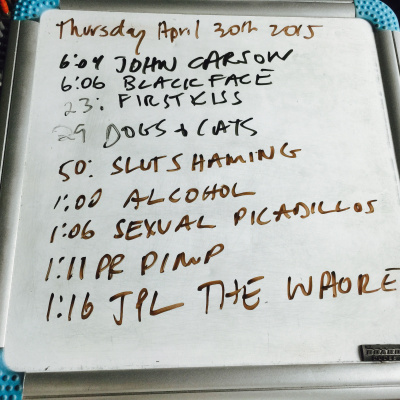 Thursday April 30th 2015
6:04 JOHN CARSON
6:06 BLACKFACE
23: FIRST KISS
29 DOGS + CATS
50: SLUTSHAMING
1:00 ALCOHOL
1:06 SEXUAL PICADILLOS
1:11 PR PIMP
1:16 JPL THE WHORE